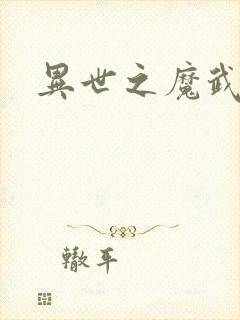 異世之魔武
轍平